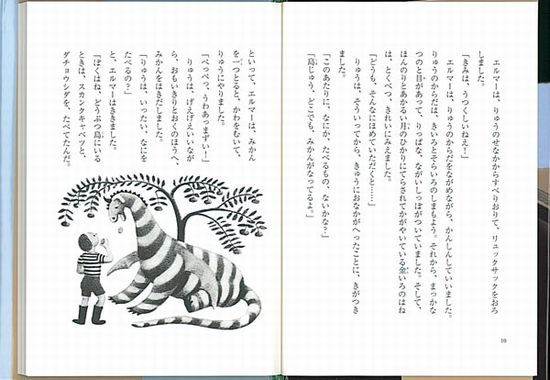 エルマーは、りゅうのせなかからすべりおりて、リュックサックをおろ
しました。
「きみは、うつくしいねえ！」
りゅうのからだをながめながら、かんしんしていいました。
りゅうのからだは、きいろとそらいろのしまもよう。それから、まっかな
つのと目があって、りっぱな、ながいしっぽがついていました。そして、
ほんのりとあかるい月のひかりにてらされてかがやいている金いろのはね
は、とくべつ、きれいにみえました。
「どうも、そんなにほめていただくと……」
りゅうは、そういってから、きゅうにおなかがへったことに、きがつき
ました。
「このあたりに、なにか、たべるもの、ないかな？」
「島じゅう、どこでも、みかんがなってるよ。」
10
といって、エルマーは、みかん
を一つとると、かわをむいて、
りゅうにやりました。
「べっべっ、うわあっまずい！」
りゅうは、げえげえいいなが
ら、おもいきりとおくのほうへ、
みかんをはきだしました。
「りゅうは、いったい、なにを
たべるの？」
と、エルマーはききました。
「ぼくはね、どうぶつ島にいる
ときは、スカンクキャベツと、
ダチョウシダを、たべてたんだ。